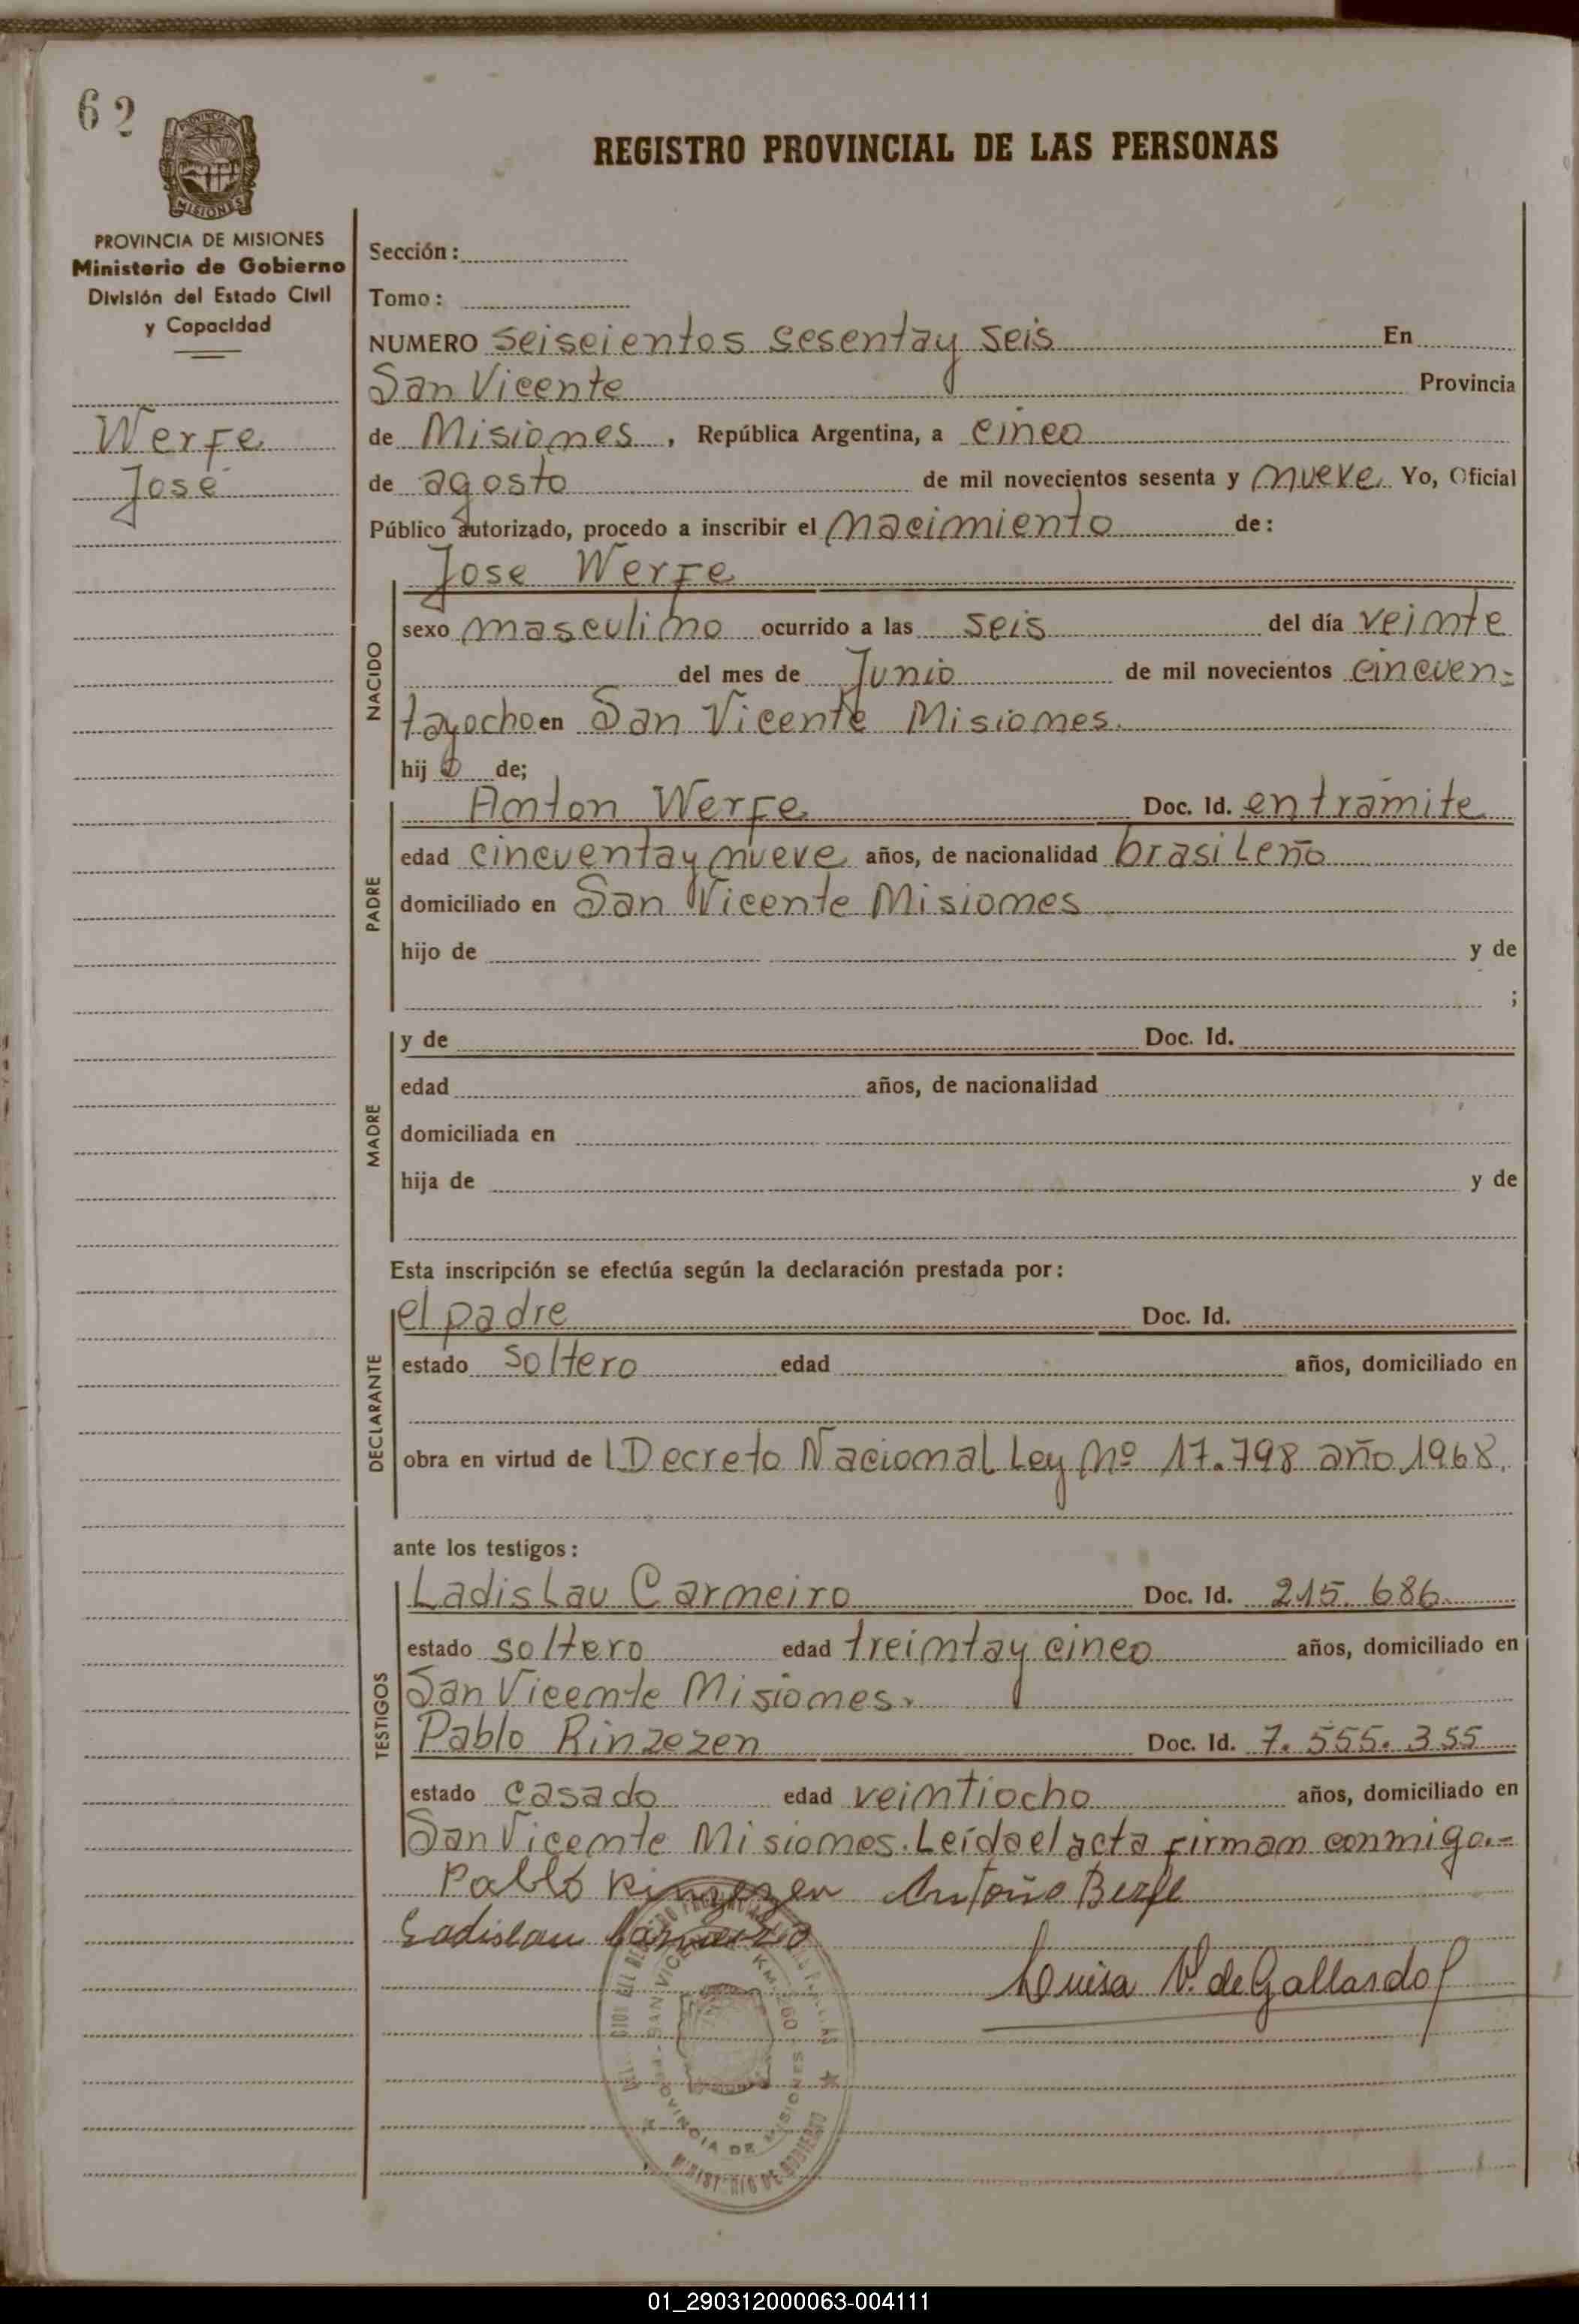 62
PROVINCIA DE
MISIONES
REGISTRO PROVINCIAL DE LAS PERSONAS
PROVINCIA DE MISIONES
Ministerio de Gobierno
División del Estado Civil
y Capacidad
Werfe
José
Sección:
Tomo:
NUMERO seiscientos sesentay seis En
San Vicente Provincia
de Misiones, República Argentina, a cinco
de agosto de mil novecientos sesenta y nueve Yo, Oficial
Público autorizado, procedo a inscribir el nacimiento de:
NACIDO
Jose Werfe
sexo masculino ocurrido a las seis del día veinte
del mes de Junio de mil novecientos cincuen=
tayocho en San Vicente Misiones.
hijo de;
PADRE
Anton Werfe Doc. Id. entramite
edad cincuentay nueve años, de nacionalidad brasileño
domiciliado en San Vicente Misiones
hijo de y de
;
MADRE
y de Doc. Id.
edad años, de nacionalidad
domiciliada en
hija de y de
Esta inscripción se efectúa según la declaración prestada por:
DECLARANTE
el padre Doc. Id.
estado soltero edad años, domiciliado en
obra en virtud de l Decreto Nacional Ley Nº 17.798 año 1968.
ante los testigos:
TESTIGOS
Ladislau Carneiro Doc. Id. 215.686
estado soltero edad treintay cinco años, domiciliado en
San Vicente Misiones.
Pablo Rinzezen Doc. Id. 7.555.355
estado casado edad veintiocho años, domiciliado en
San Vicente Misiones. Leída el acta firman conmigo.=
Pablo Rinzezen Antonio Berfe
Ladislau Carneiro
Luisa V. de Gallardo
SAN VICENTE KM. 1260
PROVINCIA DE MISIONES
MINISTERIO DE GOBIERNO
01_290312000063-004111